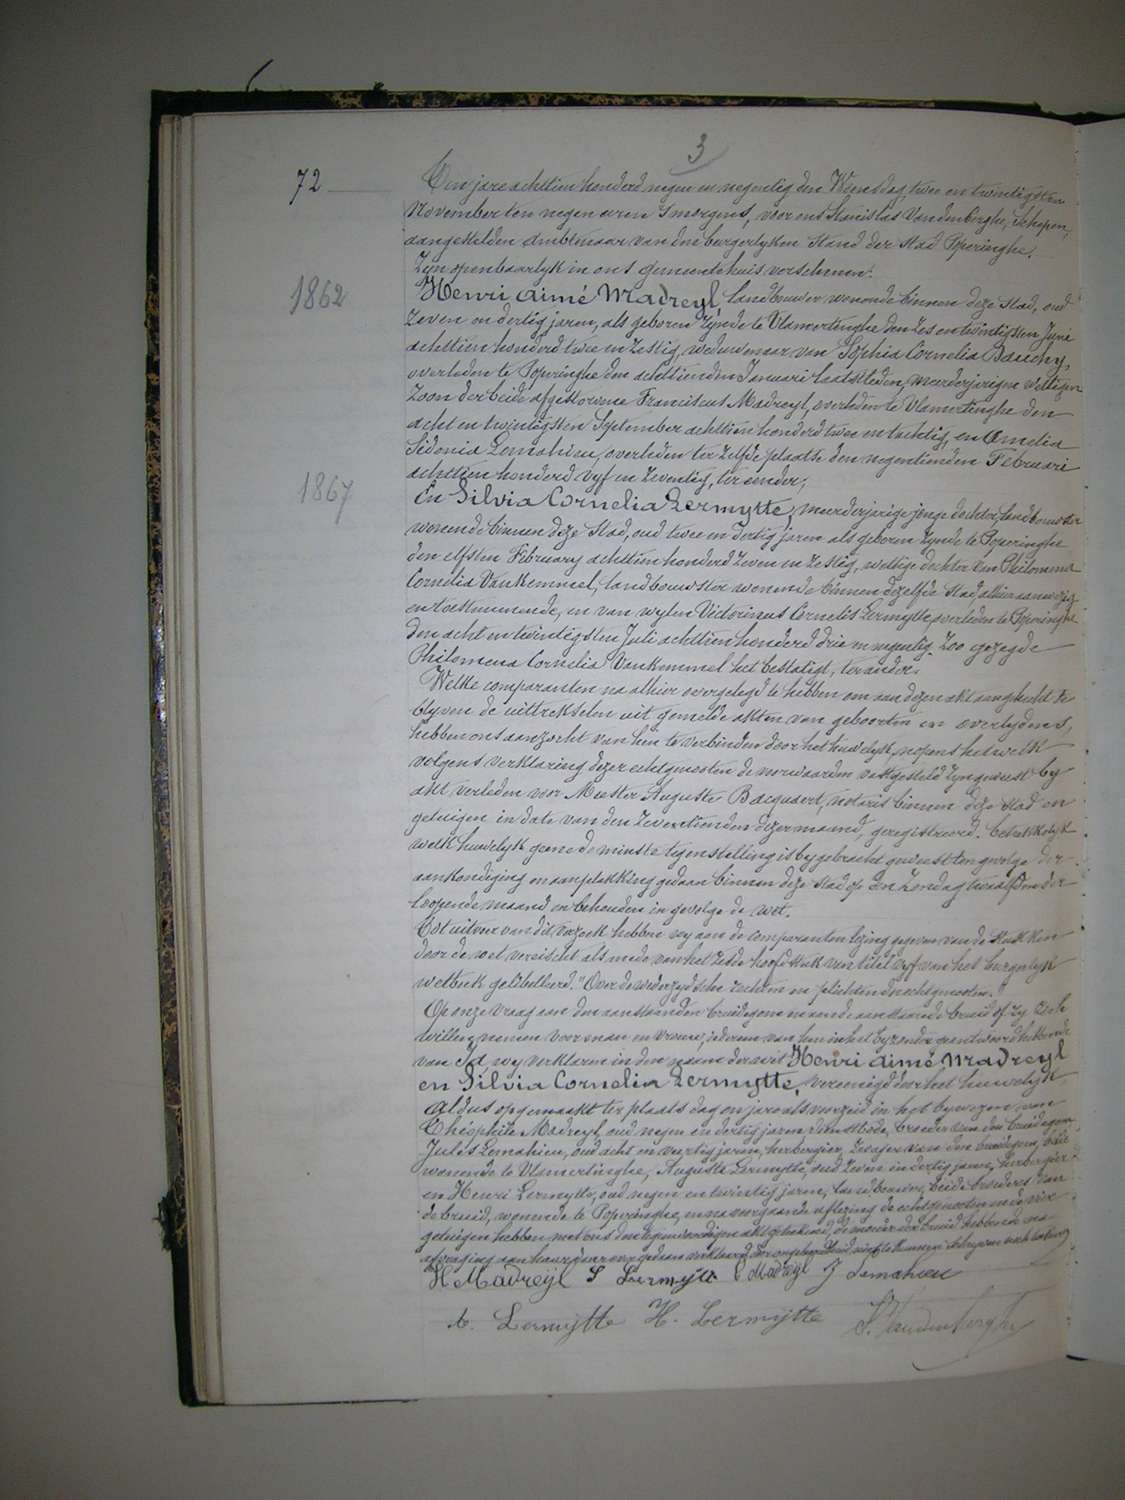 3
72
Den jare achttien honderd negen en negentig den Woensdag, twee en twintigsten
November ten negen uren 's morgens, voor ons Stanislas Vandenberghe, Schepen,
aangestelden ambtenaar van den burgerlyken Stand der Stad Poperinghe.
Zyn openbaarlyk in ons gemeentehuis verschenen:
1862
Henri Aimé Madreyl, landbouwer wonende binnen deze Stad, oud
zeven en dertig jaren, als geboren zynde te Vlamertinghe den zes en twintigsten Juni
achttien honderd twee en zestig, weduwenaar van Sophia Cornelia
overleden te Poperinghe den achttienden Januari laatstleden, meerderjarigen wettigen
zoon der beide afgestorvene Franciscus Madreyl, overleden te Vlamertinghe den
acht en twintigsten September achttien honderd twee en tachtig, en Amelia
Sidonia Lemahieu, overleden ter zelfde plaatse den negentienden Februari
achttien honderd vyf en zeventig, ter eender;
1867
En Silvia Cornelia Lermytte, meerderjarige jonge dochter, landbouwster
wonende binnen deze Stad, oud twee en dertig jaren als geboren zynde te Poperinghe
den elfsten February achttien honderd zeven en zestig, wettige dochter van Philomena
Cornelia Vankemmel, landbouwster wonende binnen dezelfde Stad, alhier aanwezig
en toestemmende, en van wylen Victorinus Cornelis Lermytte, overleden te Poperinghe
den acht en twintigsten Juli achttien honderd drie en negentig. Zoo gezegde
Philomena Cornelia Vankemmel het bestatigt, ter ander.
Welke comparanten na alhier overgelegd te hebben om aan dezen akt aangehecht te
blyven de uittrekselen uit gemelde akten van geboorten en overlydens,
hebben ons aanzocht van hen te verbinden door het huwelyk, nopens hetwelk
volgens verklaring dezer echtgenooten de voorwaarden vastgesteld zyn geweest by
akt verleden voor Meester Auguste Bacquaert, notaris binnen deze Stad en
getuigen in date van den zeventienden dezer maand, geregistreerd. Betrekkelyk
welk huwelyk geene de minste tegenstelling is bygebracht geweest ten gevolge der
aankondiging en aanplakking gedaan binnen deze Stad op den Zondag twaalfden der
loopende maand en behouden in gevolge de wet.
Tot uitvoer van dit verzoek hebben wy aan de comparanten lezing gegeven van de stukken
door de wet vereischt als mede van het zesde hoofdstuk van titel vyf van het burgerlyk
wetboek getiteleerd "Over de wederzydsche rechten en plichten der echtgenooten."
Op onze vraag aan den aanstaanden bruidegom en aan de aanstaande bruid of zy zich
willen nemen voor man en vrouw, iedereen van hen in het byzonder geantwoord hebbende
van Ja, wy verklaren in den naam der wet Henri Aimé Madreyl
en Silvia Cornelia Lermytte, vereenigd door het huwelyk.
Aldus opgemaakt ter plaats dag en jare als voorzeid in het bywezen van
Théophile Madreyl, oud negen en dertig jaren, broeder van den bruidegom,
Jules Lemahieu, oud acht en veertig jaren, herbergier, zwager van den bruidegom, beide
wonende te Vlamertinghe, Auguste Lermytte, oud zeven en dertig jaren, herbergier
en Henri Lermytte, oud negen en twintig jaren, landbouwer, beide broeders van
de bruid, wonende te Poperinghe, en na voorgaande aflezing de echtgenooten en de vier
getuigen hebben met ons den tegenwoordigen akt geteekend, de moeder der bruid hebbende na
afvraging aan haar door ons gedaan verklaard niet te kunnen schryven noch teekenen
H Madreÿl S Lermÿtte T Madreÿl J Lemahieu
A. Lermÿtte H. Lermÿtte S. Vandenberghe